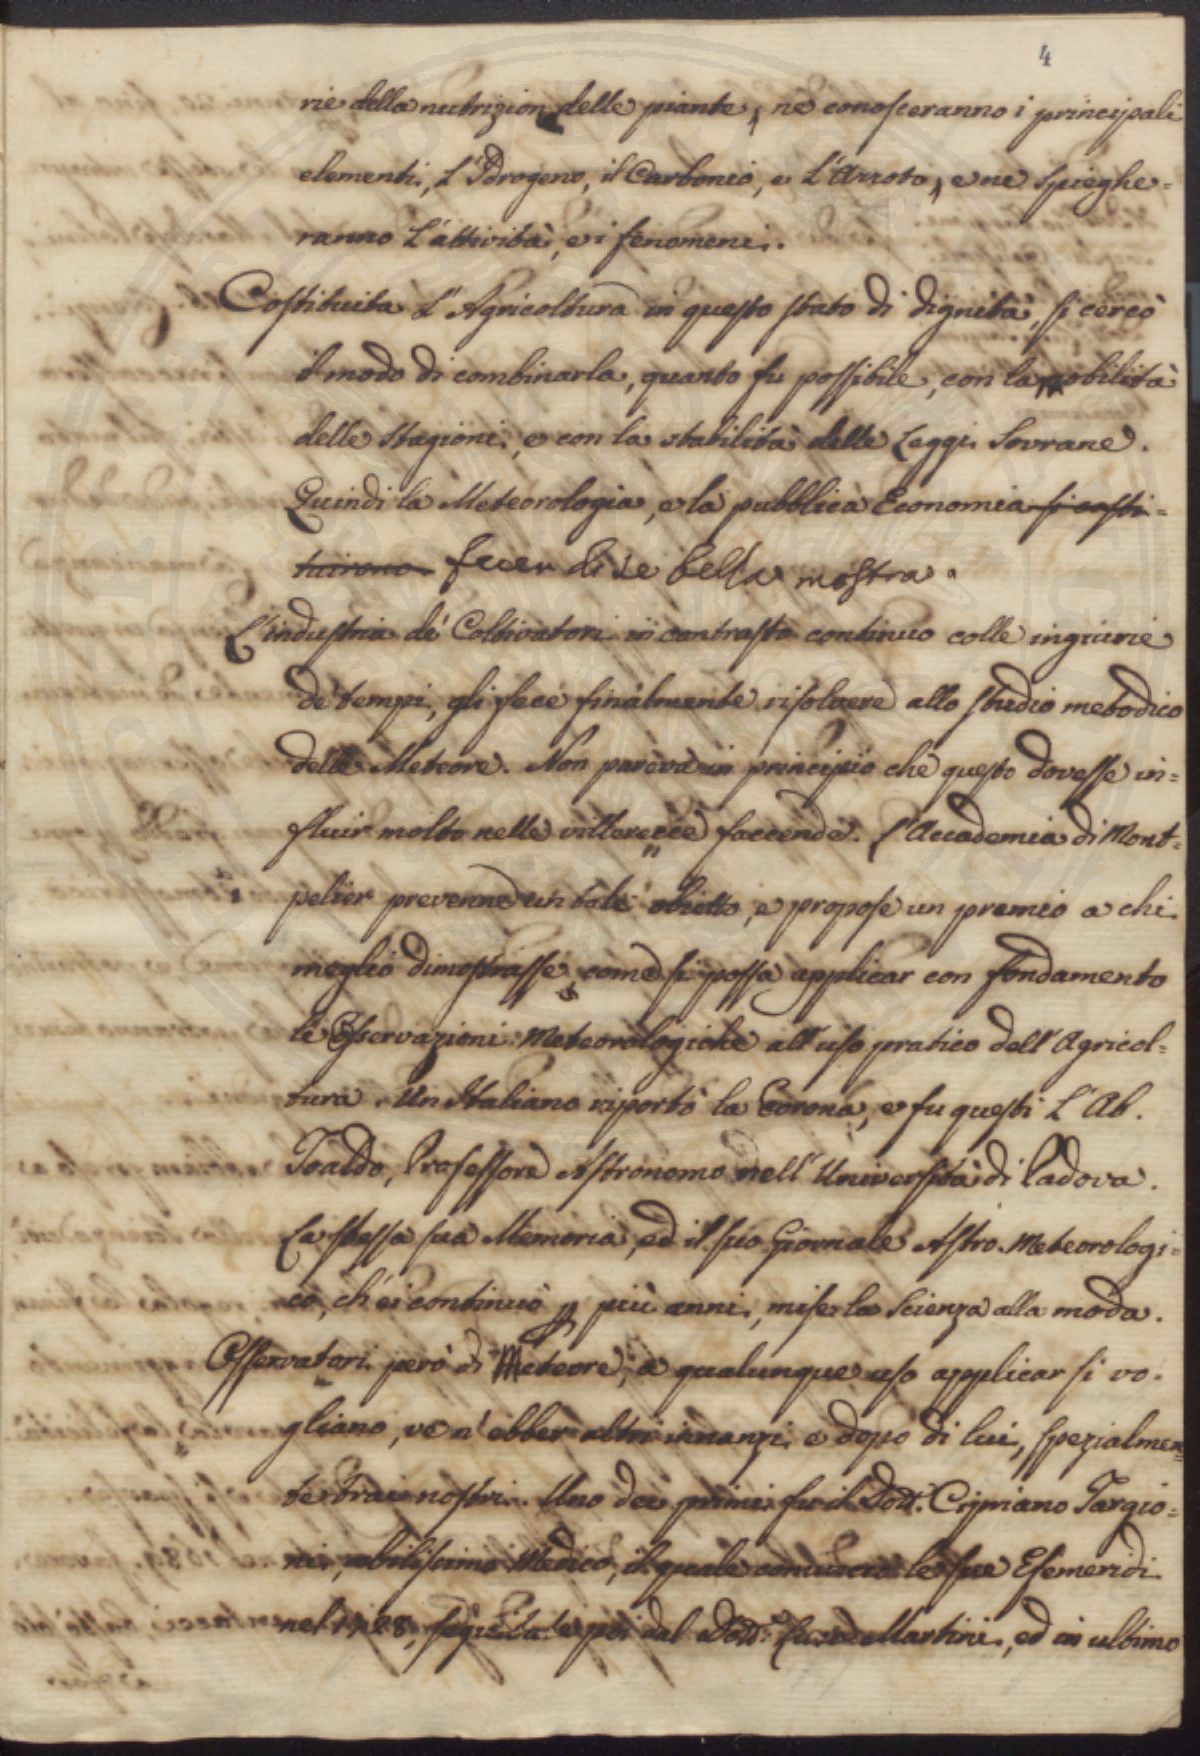 4
rie della nutrizion delle piante, ne conosceranno i principali
elementi, L'Idrogeno, il Carbonio, e L'Azzoto, e ne spieghe=
ranno L'attività, e i fenomeni.
Costituita L'Agricoltura in questo stato di dignità, si cercò
il modo di combinarla, quanto fu possibile, con la mobilità
delle Stagioni, e con la stabilità delle Leggi Sovrane.
Quindi la Meteorologia, e la pubblica Economia si costi=
tuirono fecer di se bella mostra.
L'industria de' Coltivatori in contrasto continuo colle ingiurie
de' tempi, gli fece finalmente risolvere allo studio metodico
delle Meteore. Non pareva in principio che questo dovesse in=
fluir molto nelle villerecce faccende. L'Accademia di Mont=
pelier prevenne un tale obietto, e propose un premio a chi
meglio dimostrasse, come si possa applicar con fondamento
le Osservazioni Meteorologiche all'uso pratico dell'Agricol=
tura. Un Italiano riportò la Corona, e fu questi L'Ab.
Toaldo, Professore Astronomo nell'Università di Padova.
La stessa sua Memoria, ed il suo Giornale Astro-Meteorologi=
co, ch'ei continuò p più anni, mise la Scienza alla moda.
Osservatori però di Meteore, a qualunque uso applicar si vo=
gliano, ve n'ebber altri innanzi e dopo di lui, spezialmen=
te trai nostri. Uno dei primi fu il Dott. Cipriano Targio=
ni, nobilissimo Medico, il quale cominciò le sue Efemeridi
nel 1728, seguitate poi dal Dott. Martini, ed in ultimo